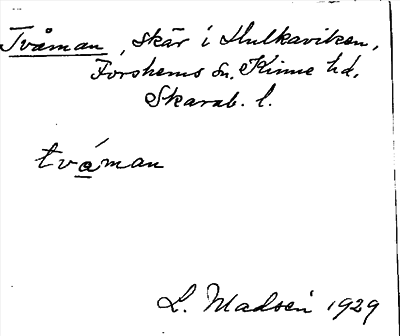 Tvåman, skär i Hulkaviken,
Forshems sn. Kinne hd.
Skarab. l.
tváman
L. Madsén 1929